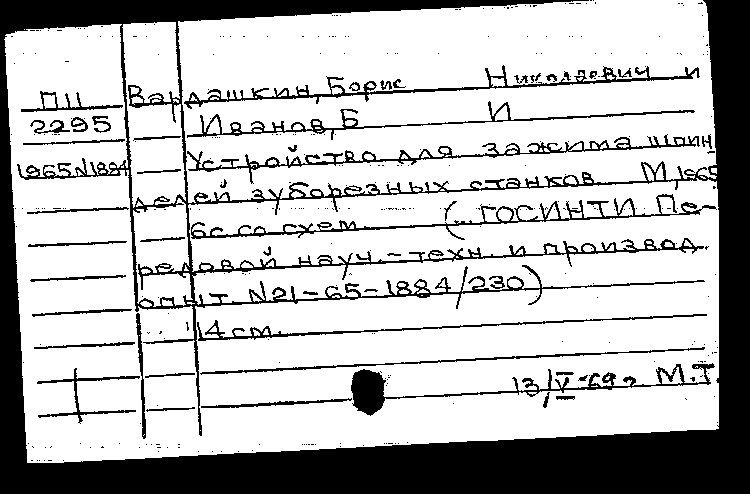 П11 Вардашкин, Борис Николаевич и
2295 Иванов, Б И
1965 N1884 Устройство для зажима шпин
делей зуборезных станков М, 1965
6с со схем. (... ГОСИНТИ. Пе-
редовой науч.-техн. и производ.
опыт. N21-65-1884/230)
14 см.
13/V-69г М.Т.